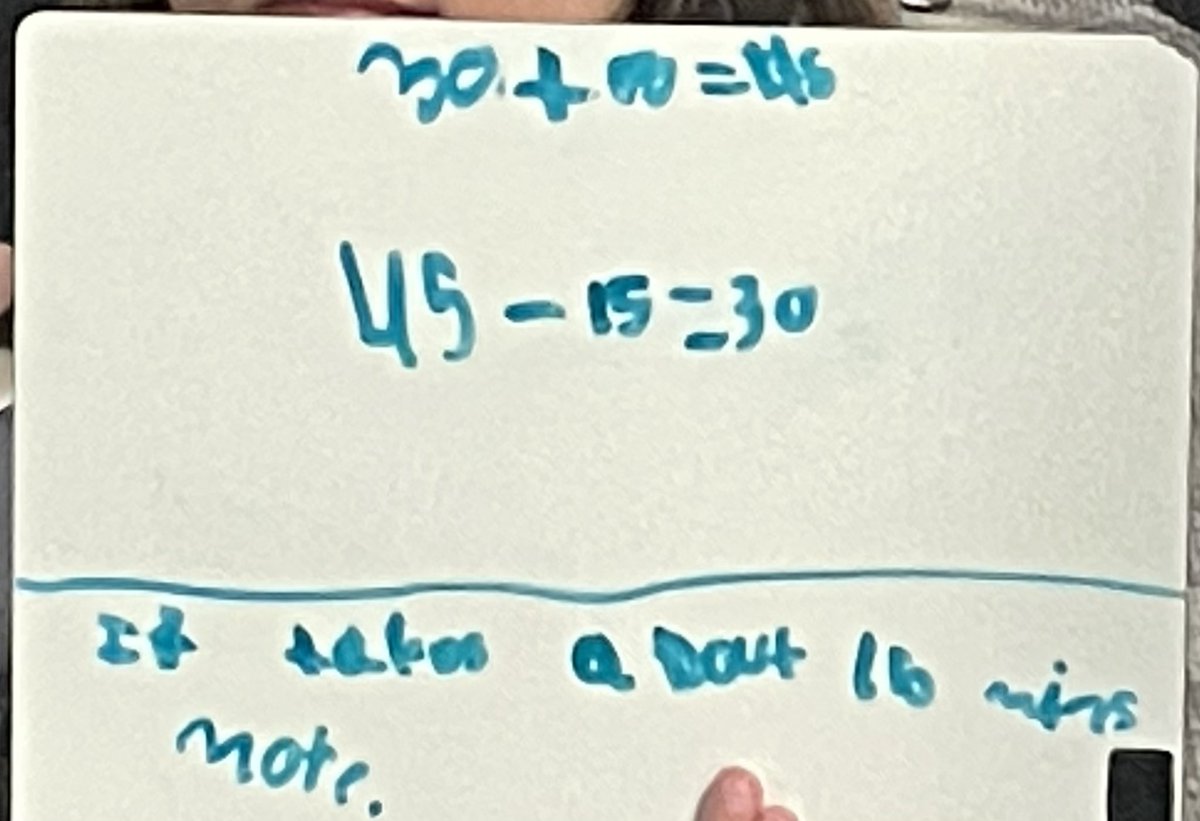 30 + = 45
45 - 15 = 30
It takes about 16 mins
more.